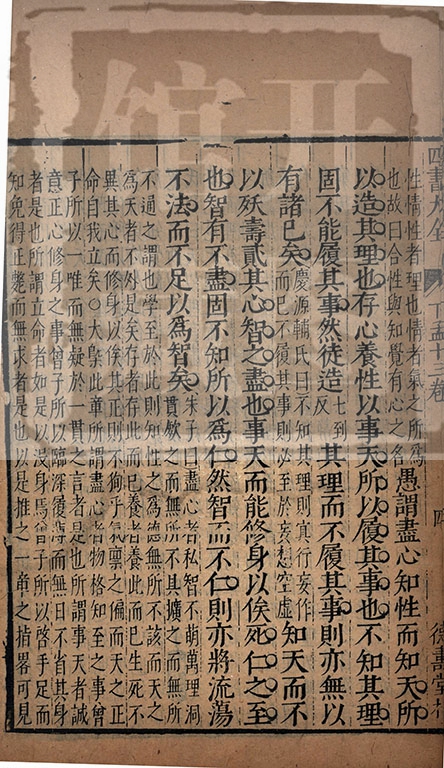 四書大全 下孟十三卷 四
性情性者理也情者氣之所爲
也故曰合性與知覺有心之名
愚謂盡心知性而知天所
以造其理也存心養性以事天所以履其事也不知其理
固不能履其事然徒造七到反其理而不履其事則亦無以
有諸己矣
慶源輔氏曰不知其理則冥行妄作
而已不履其事則必至於妄想空虛
知天而不
以殀壽貳其心智之盡也事天而能修身以俟死仁之至
也智有不盡固不知所以爲仁然智而不仁則亦將流蕩
不法而不足以爲智矣
朱子曰盡心者私智不萌萬理洞
貫斂之而無所不具擴之而無所
不通之謂也學至於此則知性之爲德無所不該而天之
爲天者不外是矣存者存此而已養者養此而已生死不
異其心而修身以俟其正則不狥乎氣稟之偏而天之正
命自我立矣○大槩此章所謂盡心者物格知至之事曾
子所以一唯而無疑於一貫之言者是也所謂事天者誠
意正心修身之事曾子所以臨深履薄而無日不省其身
者是也所謂立命者如是以沒身焉曾子所以啓手足而
知免得正斃而無求者是也以是推之一章之指畧可見